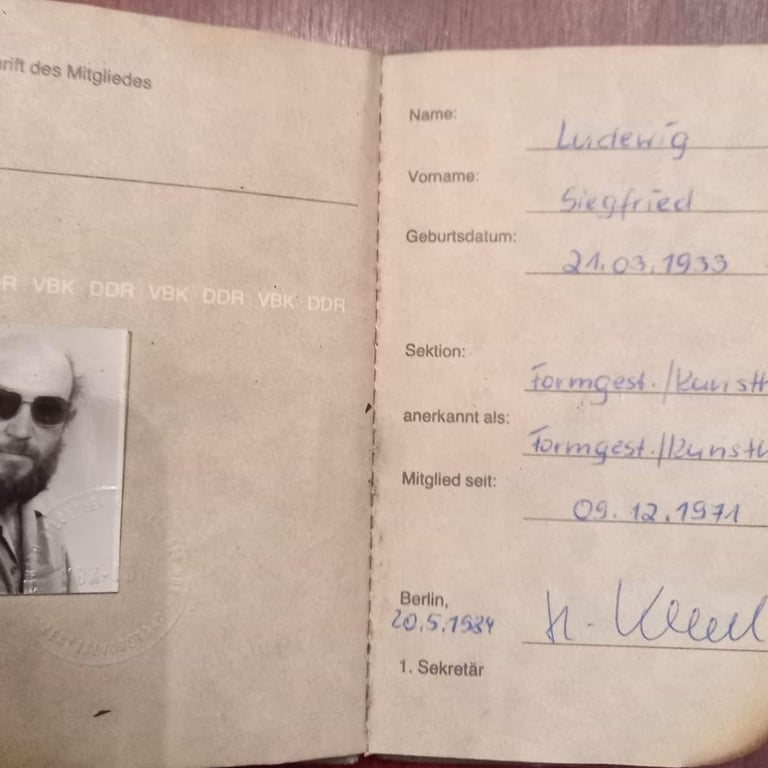 rift des Mitgliedes
R VBK DDR VBK DDR VBK DDR
Name: Ludewig
Vorname: Siegfried
Geburtsdatum: 21.03.1933
Sektion: Formgest./Kunsth
anerkannt als: Formgest./Kunsth
Mitglied seit: 09.12.1971
Berlin,
20.5.1984
H.
1. Sekretär